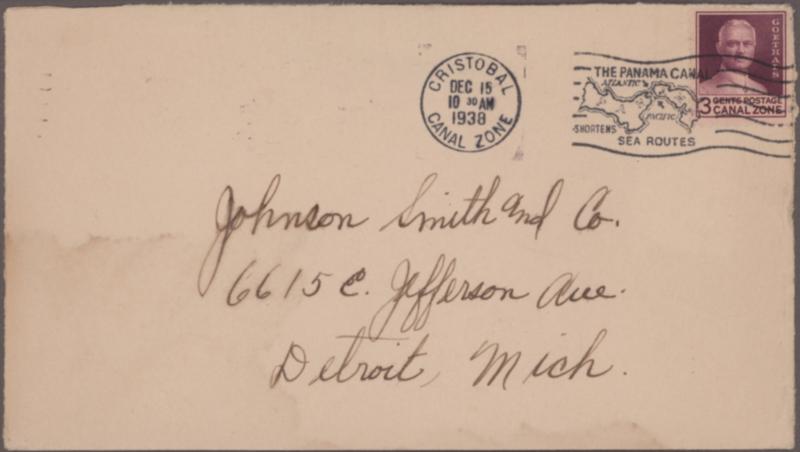 CRISTOBAL
DEC 15
10 30 AM
1938
CANAL ZONE
THE PANAMA CANAL
ATLANTIC
PACIFIC
SHORTENS
SEA ROUTES
GOETHALS
3 CENTS POSTAGE
CANAL ZONE
Johnson Smith and Co.
6615 E. Jefferson Ave.
Detroit, Mich.